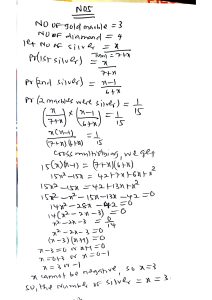 NO5
NO OF gold marble = 3
NO OF diamond = 4
let NO OF silver = x
Total = 7+x
Pr(1st silver) = x/7+x
Pr(2nd silver) = x-1/6+x
Pr(2 marbles were silver) = 1/15
(x/7+x) x (x-1/6+x) = 1/15
x(x-1)/(7+x)(6+x) = 1/15
Cross multiplying, we get
15(x)(x-1) = (7+x)(6+x)
15x²-15x = 42+7x+6x+x²
15x²-15x = 42+13x+x²
15x²-x²-15x-13x-42=0
14x²-28x-42=0
14(x²-2x-3)=0
x²-2x-3 = 0/14
x²-2x-3=0
(x-3)(x+1)=0
x-3=0 or x+1=0
x=0+3 or x=0-1
x=3 or -1
x cannot be negative, so x=3
so, the number of silver = x = 3.